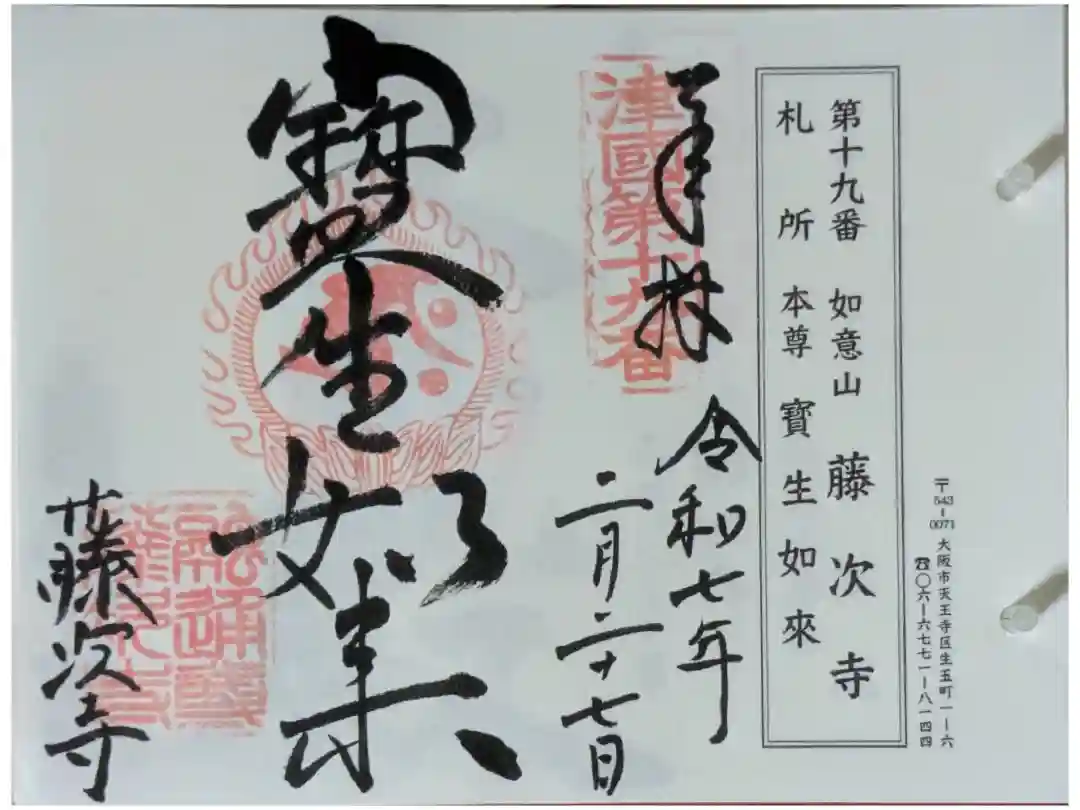 〒543-0071 大阪市天王寺区生玉町一-六
☎〇六-六七七一-八一四四
第十九番 如意山 藤次寺
札所 本尊 寶生如來
奉拝 令和七年
二月二十七日
津國第十九番
寶生如来
藤次寺